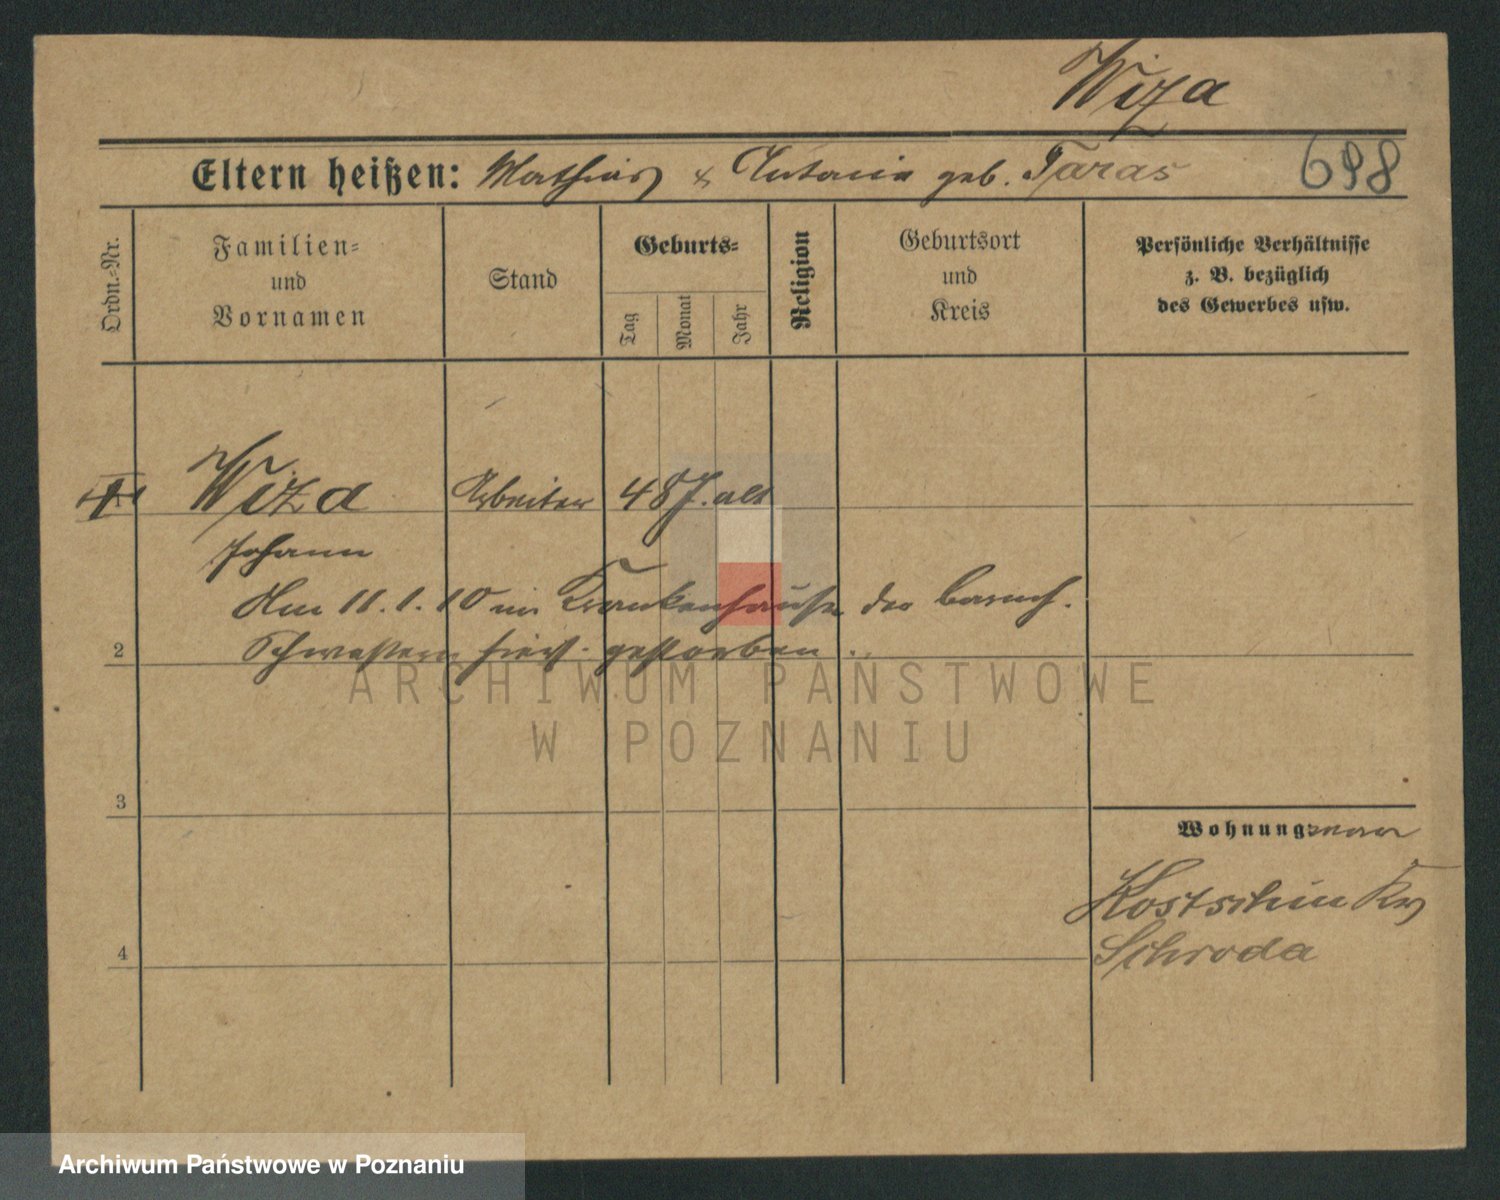 Wiza
Eltern heißen: Mathias & Antonie geb. Taras
698
Ordn.-Nr.
Familien-
und
Vornamen
Stand
Geburts-
Tag
Monat
Jahr
Religion
Geburtsort
und
Kreis
Persönliche Verhältnisse
z. B. bezüglich
des Gewerbes usw.
Wiza Arbeiter 48 J. alt
Johann
Am 11.1.10 im Krankenhause der barmh.
2 Schwestern hies. gestorben.
ARCHIWUM PAŃSTWOWE
W POZNANIU
3
Wohnung: war
Kostschin Kr
4 Schroda
Archiwum Państwowe w Poznaniu